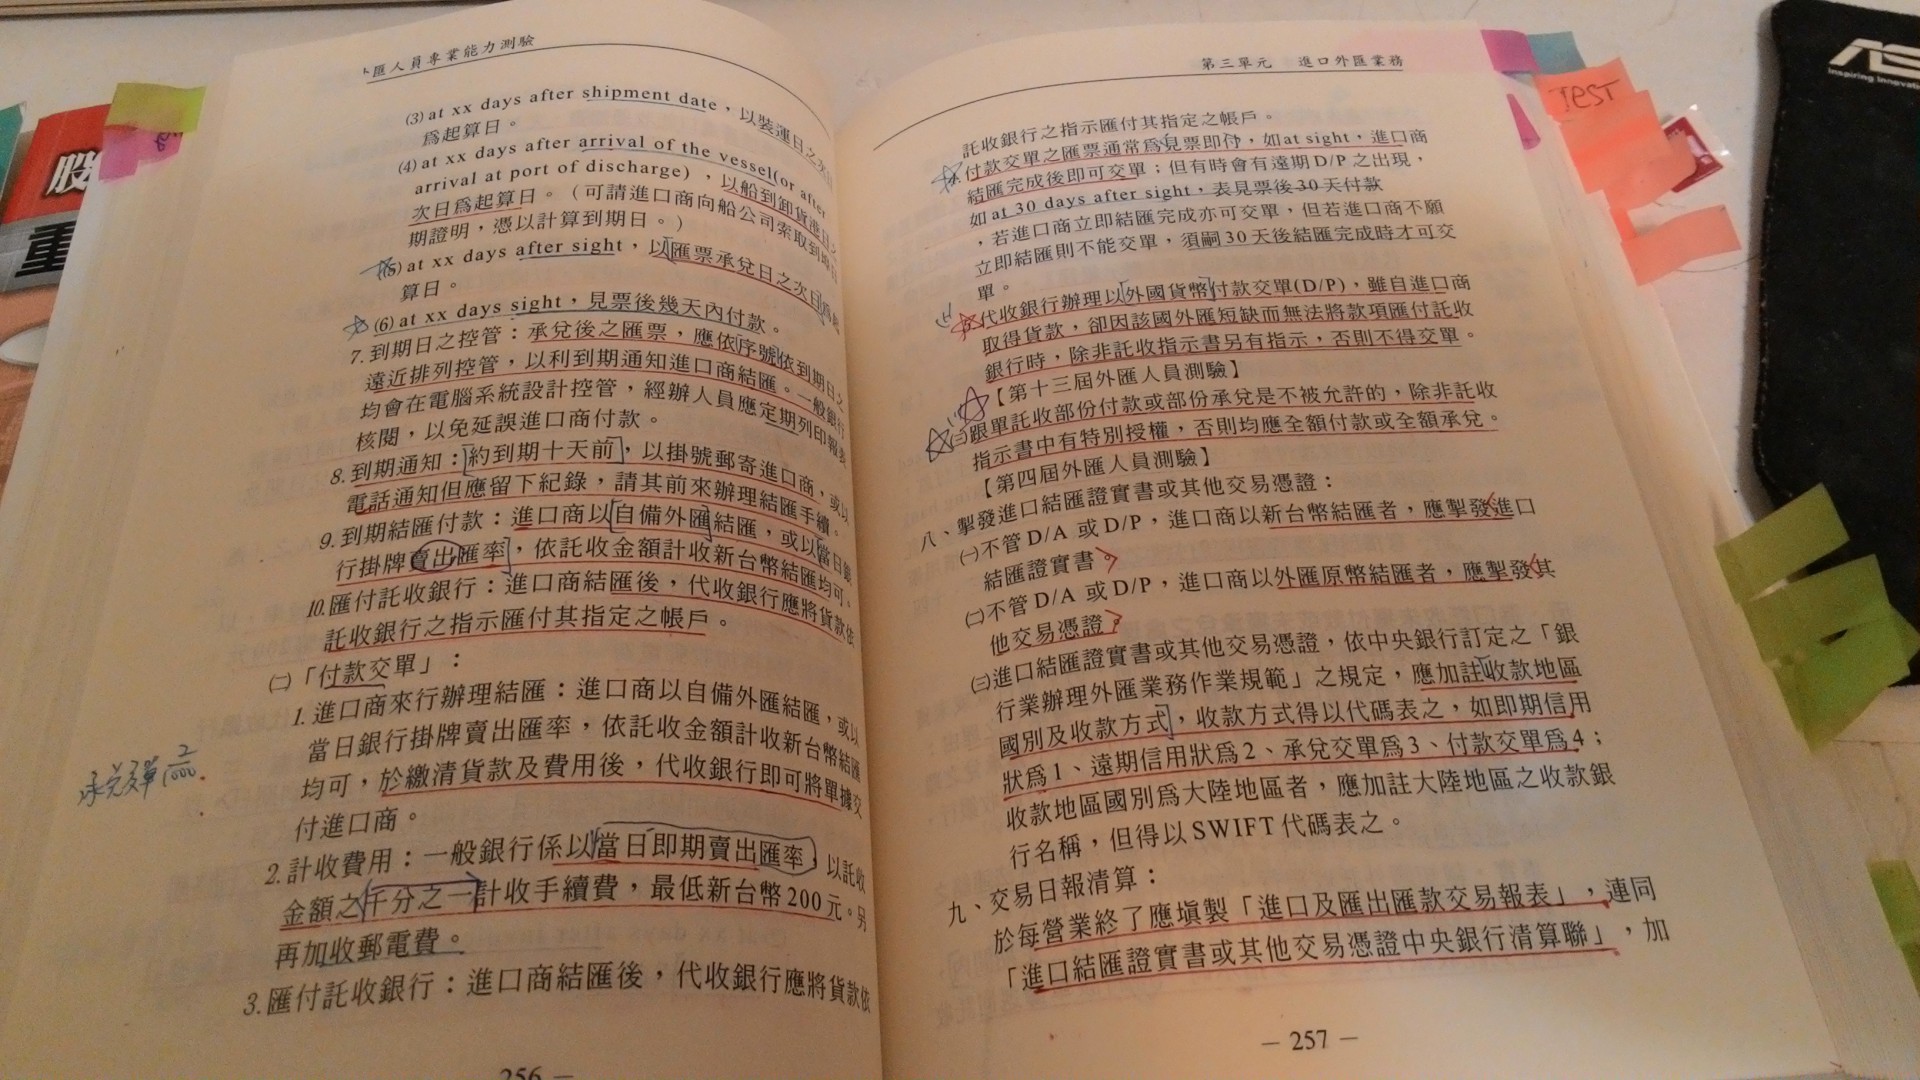 匯人員專業能力測驗
(3) at xx days after shipment date，以裝運日之次日
為起算日。
(4) at xx days after arrival of the vessel(or after
arrival at port of discharge)，以船到卸貨港日之
次日為起算日。（可請進口商向船公司索取到
期證明，憑以計算到期日。）
(5) at xx days after sight，以匯票承兌日之次日
算日。
(6) at xx days sight，見票後幾天內付款。
7.到期日之控管：承兌後之匯票，應依序號依到期日之
遠近排列控管，以利到期通知進口商結匯。一般銀行
均會在電腦系統設計控管，經辦人員應定期列印報表
核閱，以免延誤進口商付款。
8.到期通知：約到期十天前，以掛號郵寄進口商，或以
電話通知但應留下紀錄，請其前來辦理結匯手續。
9.到期結匯付款：進口商以自備外匯結匯，或以當日銀
行掛牌賣出匯率，依託收金額計收新台幣結匯均可。
10.匯付託收銀行：進口商結匯後，代收銀行應將貨款依
託收銀行之指示匯付其指定之帳戶。
㈡「付款交單」：
1.進口商來行辦理結匯：進口商以自備外匯結匯，或以
當日銀行掛牌賣出匯率，依託收金額計收新台幣結匯
均可，於繳清貨款及費用後，代收銀行即可將單據交
付進口商。
2.計收費用：一般銀行係以當日即期賣出匯率，以託收
金額之千分之一計收手續費，最低新台幣200元。另
再加收郵電費。
3.匯付託收銀行：進口商結匯後，代收銀行應將貨款依
256 —
承兌交單
第三單元 進口外匯業務
託收銀行之指示匯付其指定之帳戶。
付款交單之匯票通常為見票即付，如at sight，進口商
結匯完成後即可交單；但有時會有遠期D/P之出現，
如at 30 days after sight，表見票後30天付款
，若進口商立即結匯完成亦可交單，但若進口商不願
立即結匯則不能交單，須嗣30天後結匯完成時才可交
單。
代收銀行辦理以外國貨幣付款交單(D/P)，雖自進口商
取得貨款，卻因該國外匯短缺而無法將款項匯付託收
銀行時，除非託收指示書另有指示，否則不得交單。
【第十三屆外匯人員測驗】
㈢跟單託收部份付款或部份承兌是不被允許的，除非託收
指示書中有特別授權，否則均應全額付款或全額承兌。
【第四屆外匯人員測驗】
八、掣發進口結匯證實書或其他交易憑證：
㈠不管D/A或D/P，進口商以新台幣結匯者，應掣發進口
結匯證實書。
㈡不管D/A或D/P，進口商以外匯原幣結匯者，應掣發其
他交易憑證。
㈢進口結匯證實書或其他交易憑證，依中央銀行訂定之「銀
行業辦理外匯業務作業規範」之規定，應加註收款地區
國別及收款方式，收款方式得以代碼表之，如即期信用
狀為1、遠期信用狀為2、承兌交單為3、付款交單為4；
收款地區國別為大陸地區者，應加註大陸地區之收款銀
行名稱，但得以SWIFT代碼表之。
九、交易日報清算：
於每營業終了應填製「進口及匯出匯款交易報表」，連同
「進口結匯證實書或其他交易憑證中央銀行清算聯」，加
— 257 —
TEST
股
重
Inspiring Innovati